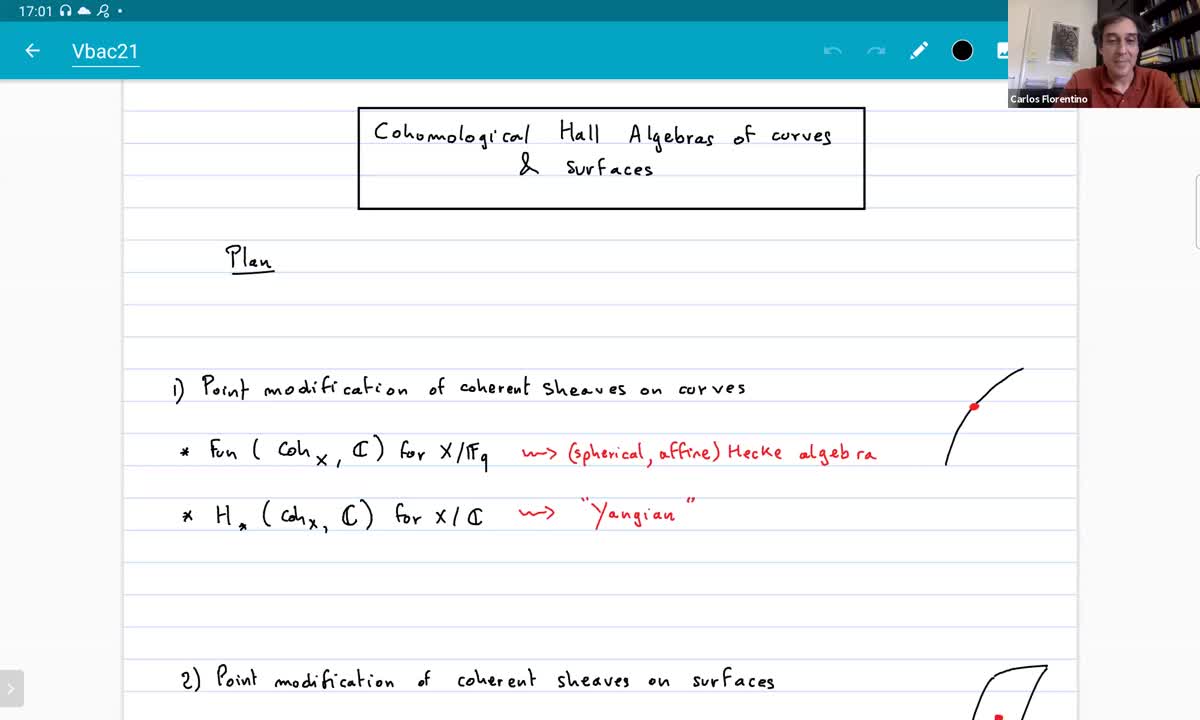 17:01
Vbac21
Carlos Florentino
Cohomological Hall Algebras of curves
& surfaces
Plan
1) Point modification of coherent sheaves on curves
* Fun ( Coh_X, ℂ ) for X/𝔽_q ⇝ (spherical, affine) Hecke algebra
* H_* ( Coh_X, ℂ ) for X/ℂ ⇝ "Yangian"
2) Point modification of coherent sheaves on surfaces